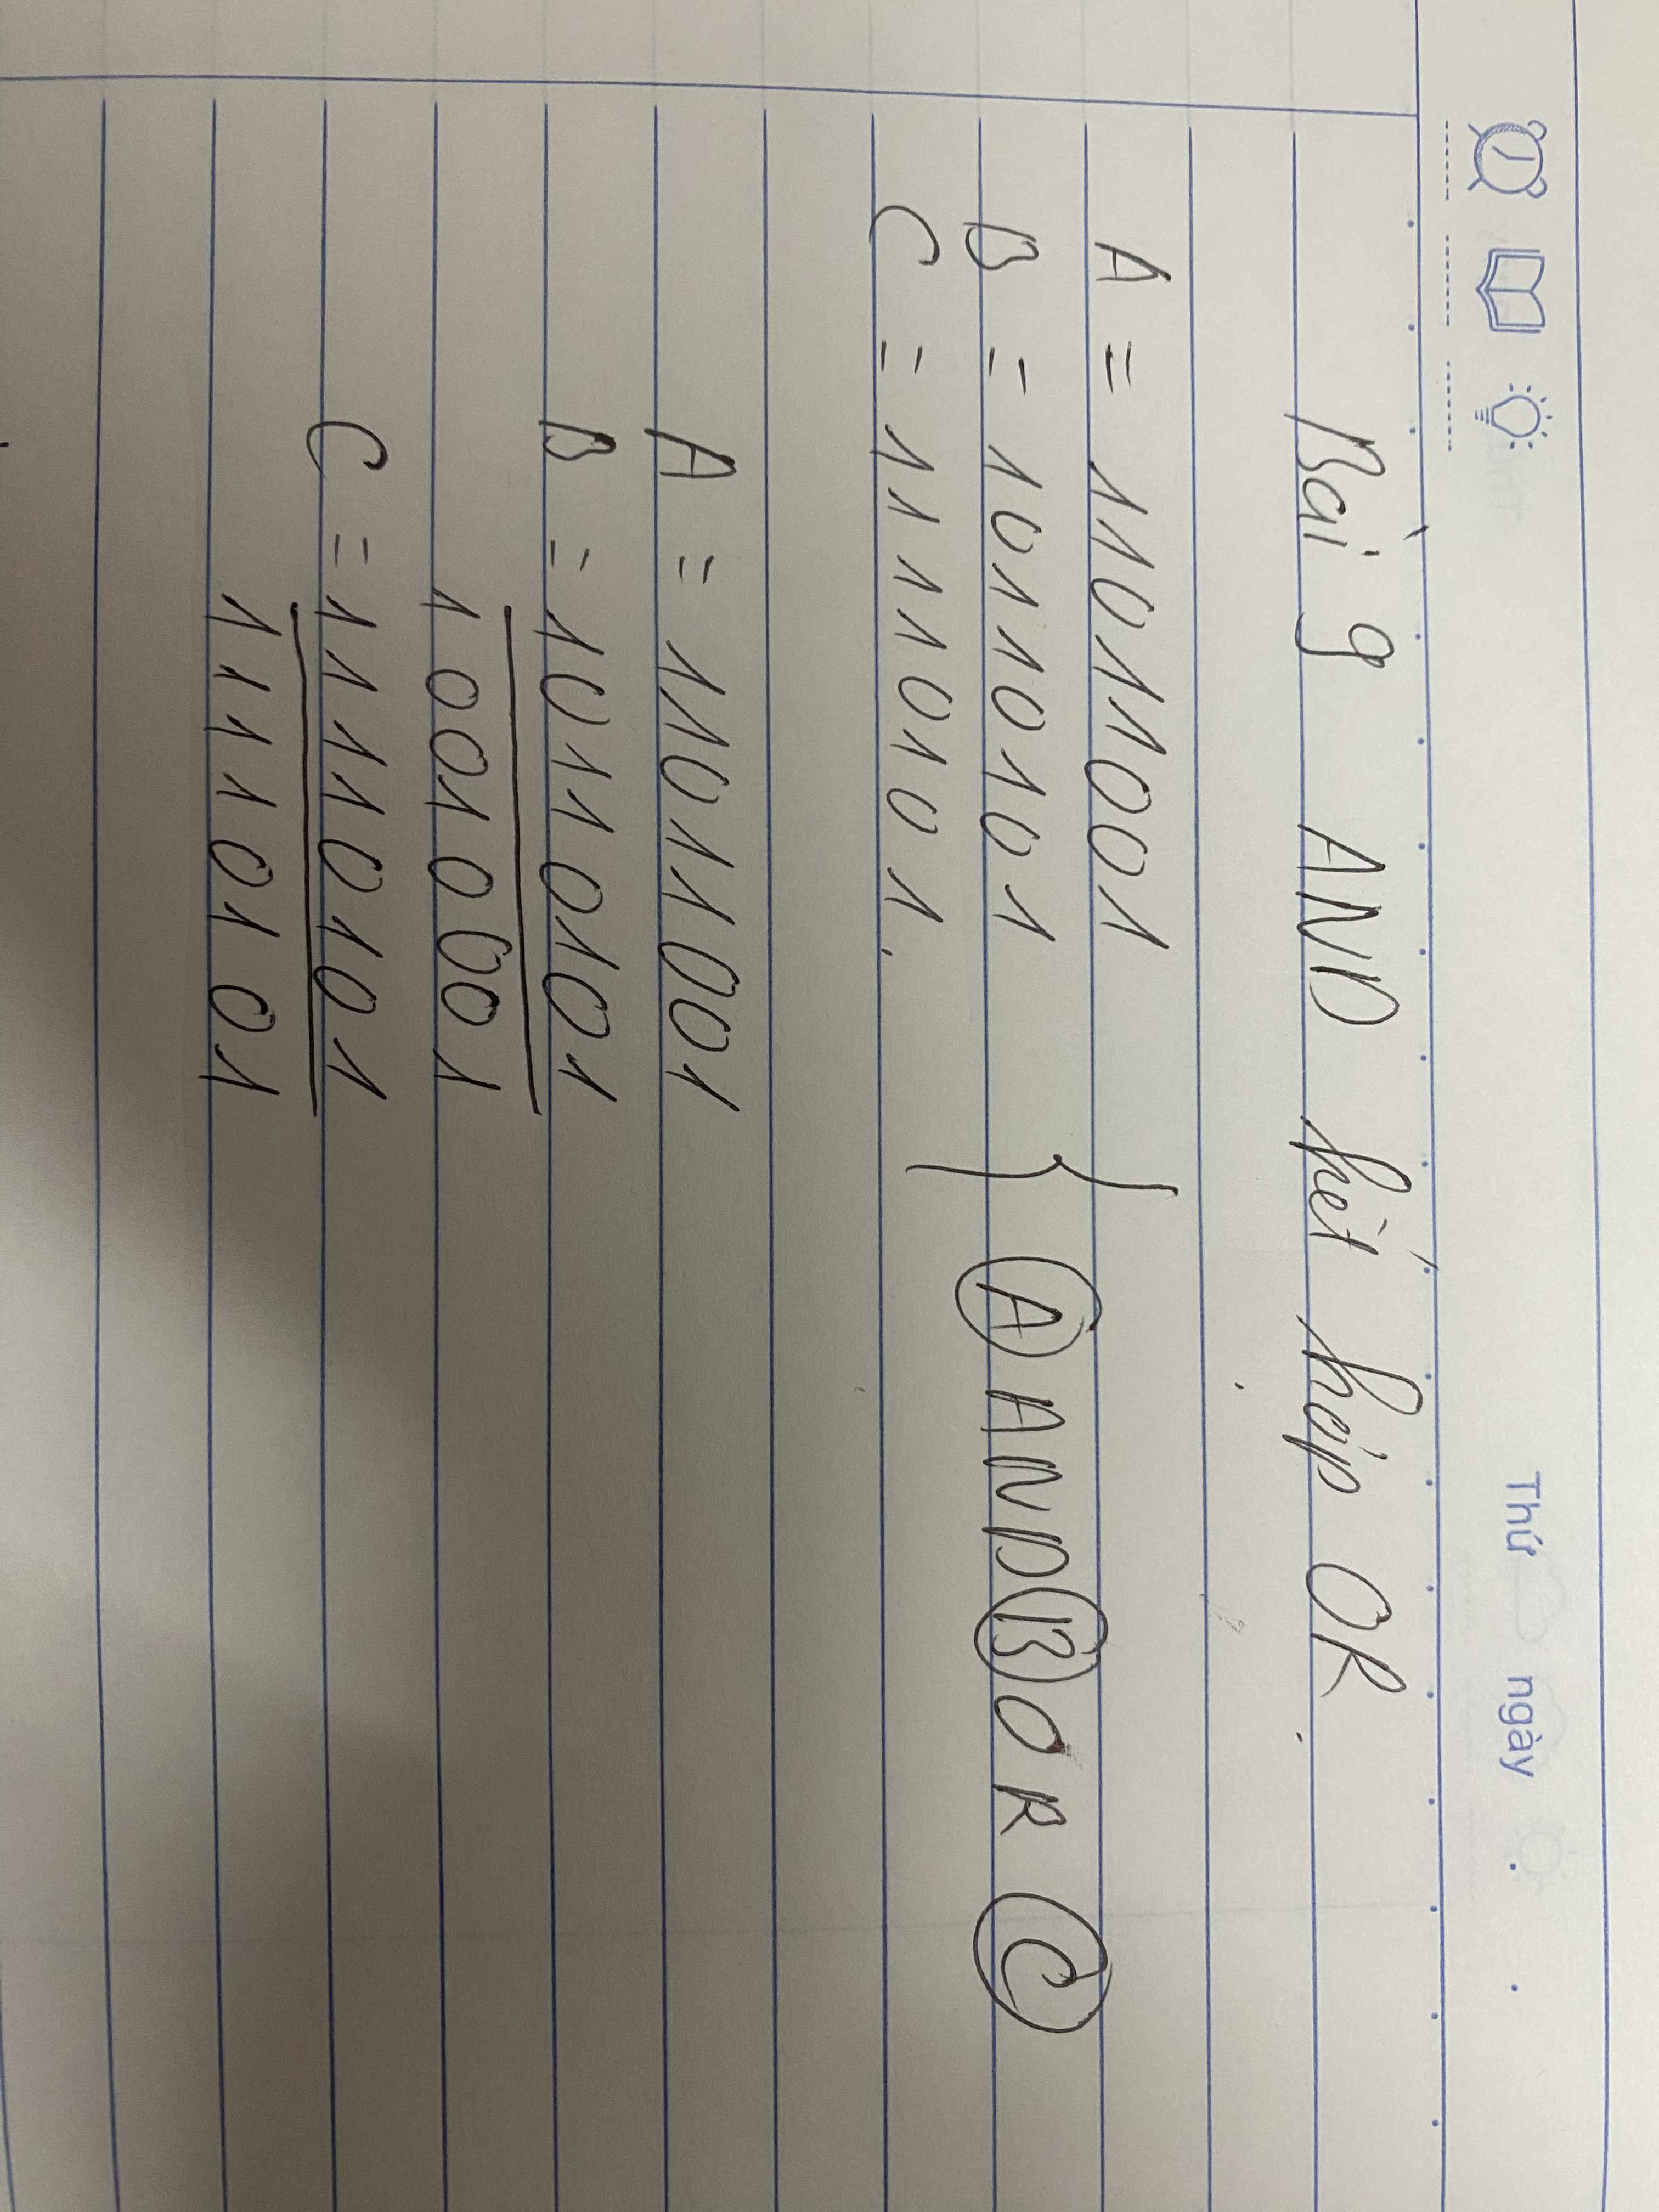 Thứ ngày
Bài 9 AND kết hợp OR
A = 11011001
B = 10110101
C = 11110101. } A AND B OR C
A = 11011001
B = 10110101
10010001
C = 11110101
11110101